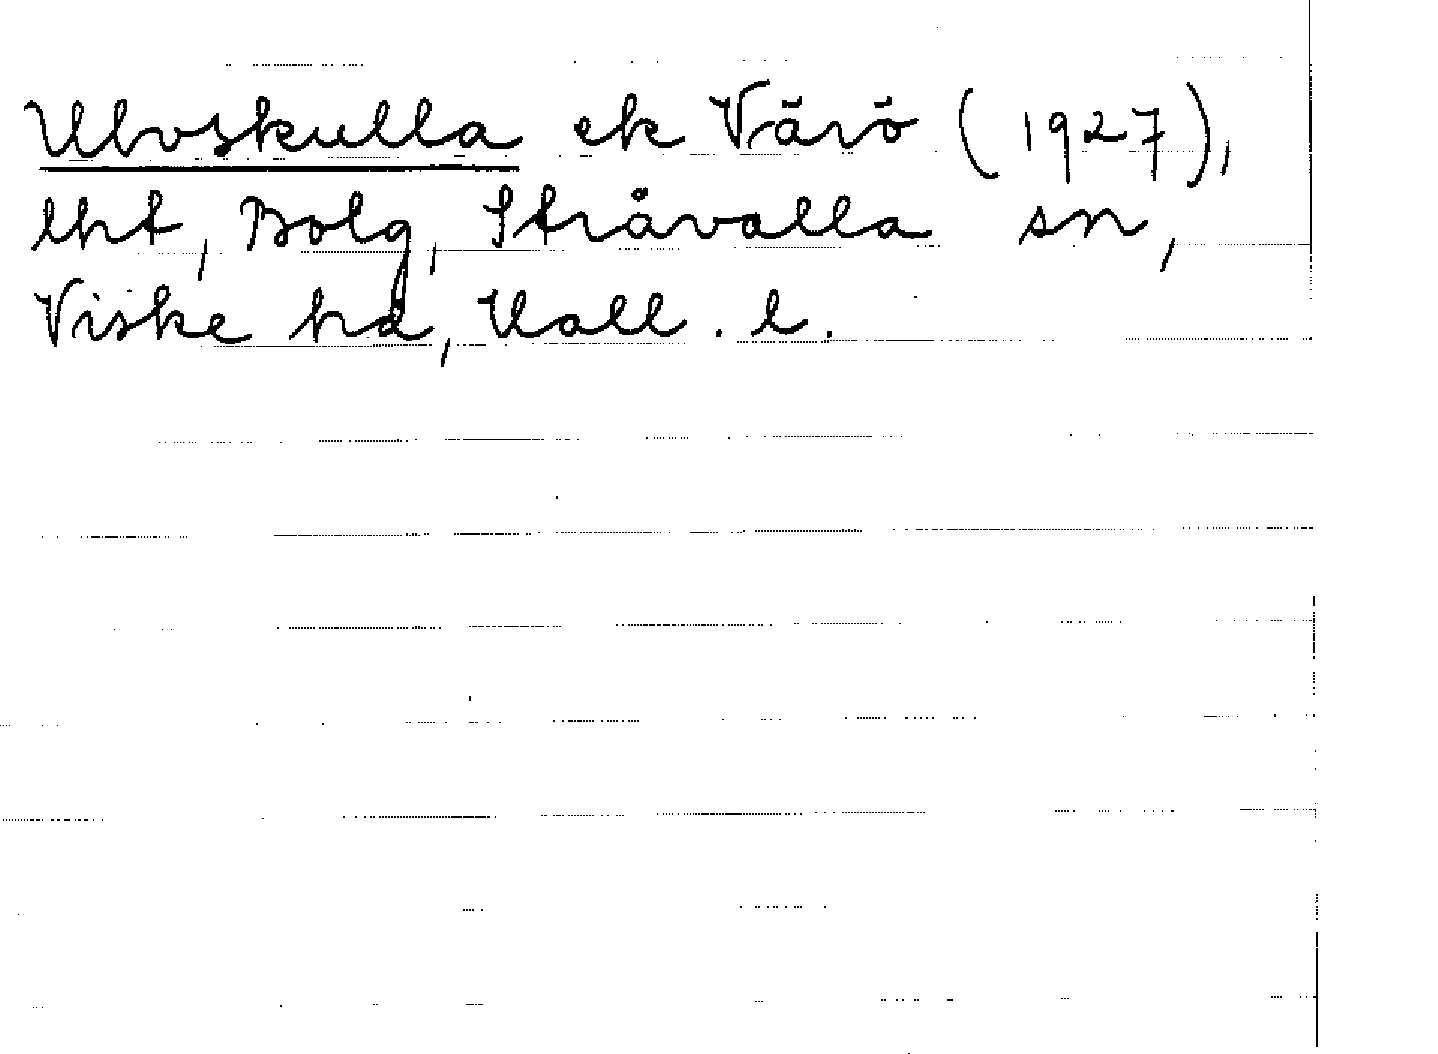 Ulvskulla ek Värö (1927),
lht, Bolg, Stråvalla sn,
Viske hd, Hall. l.